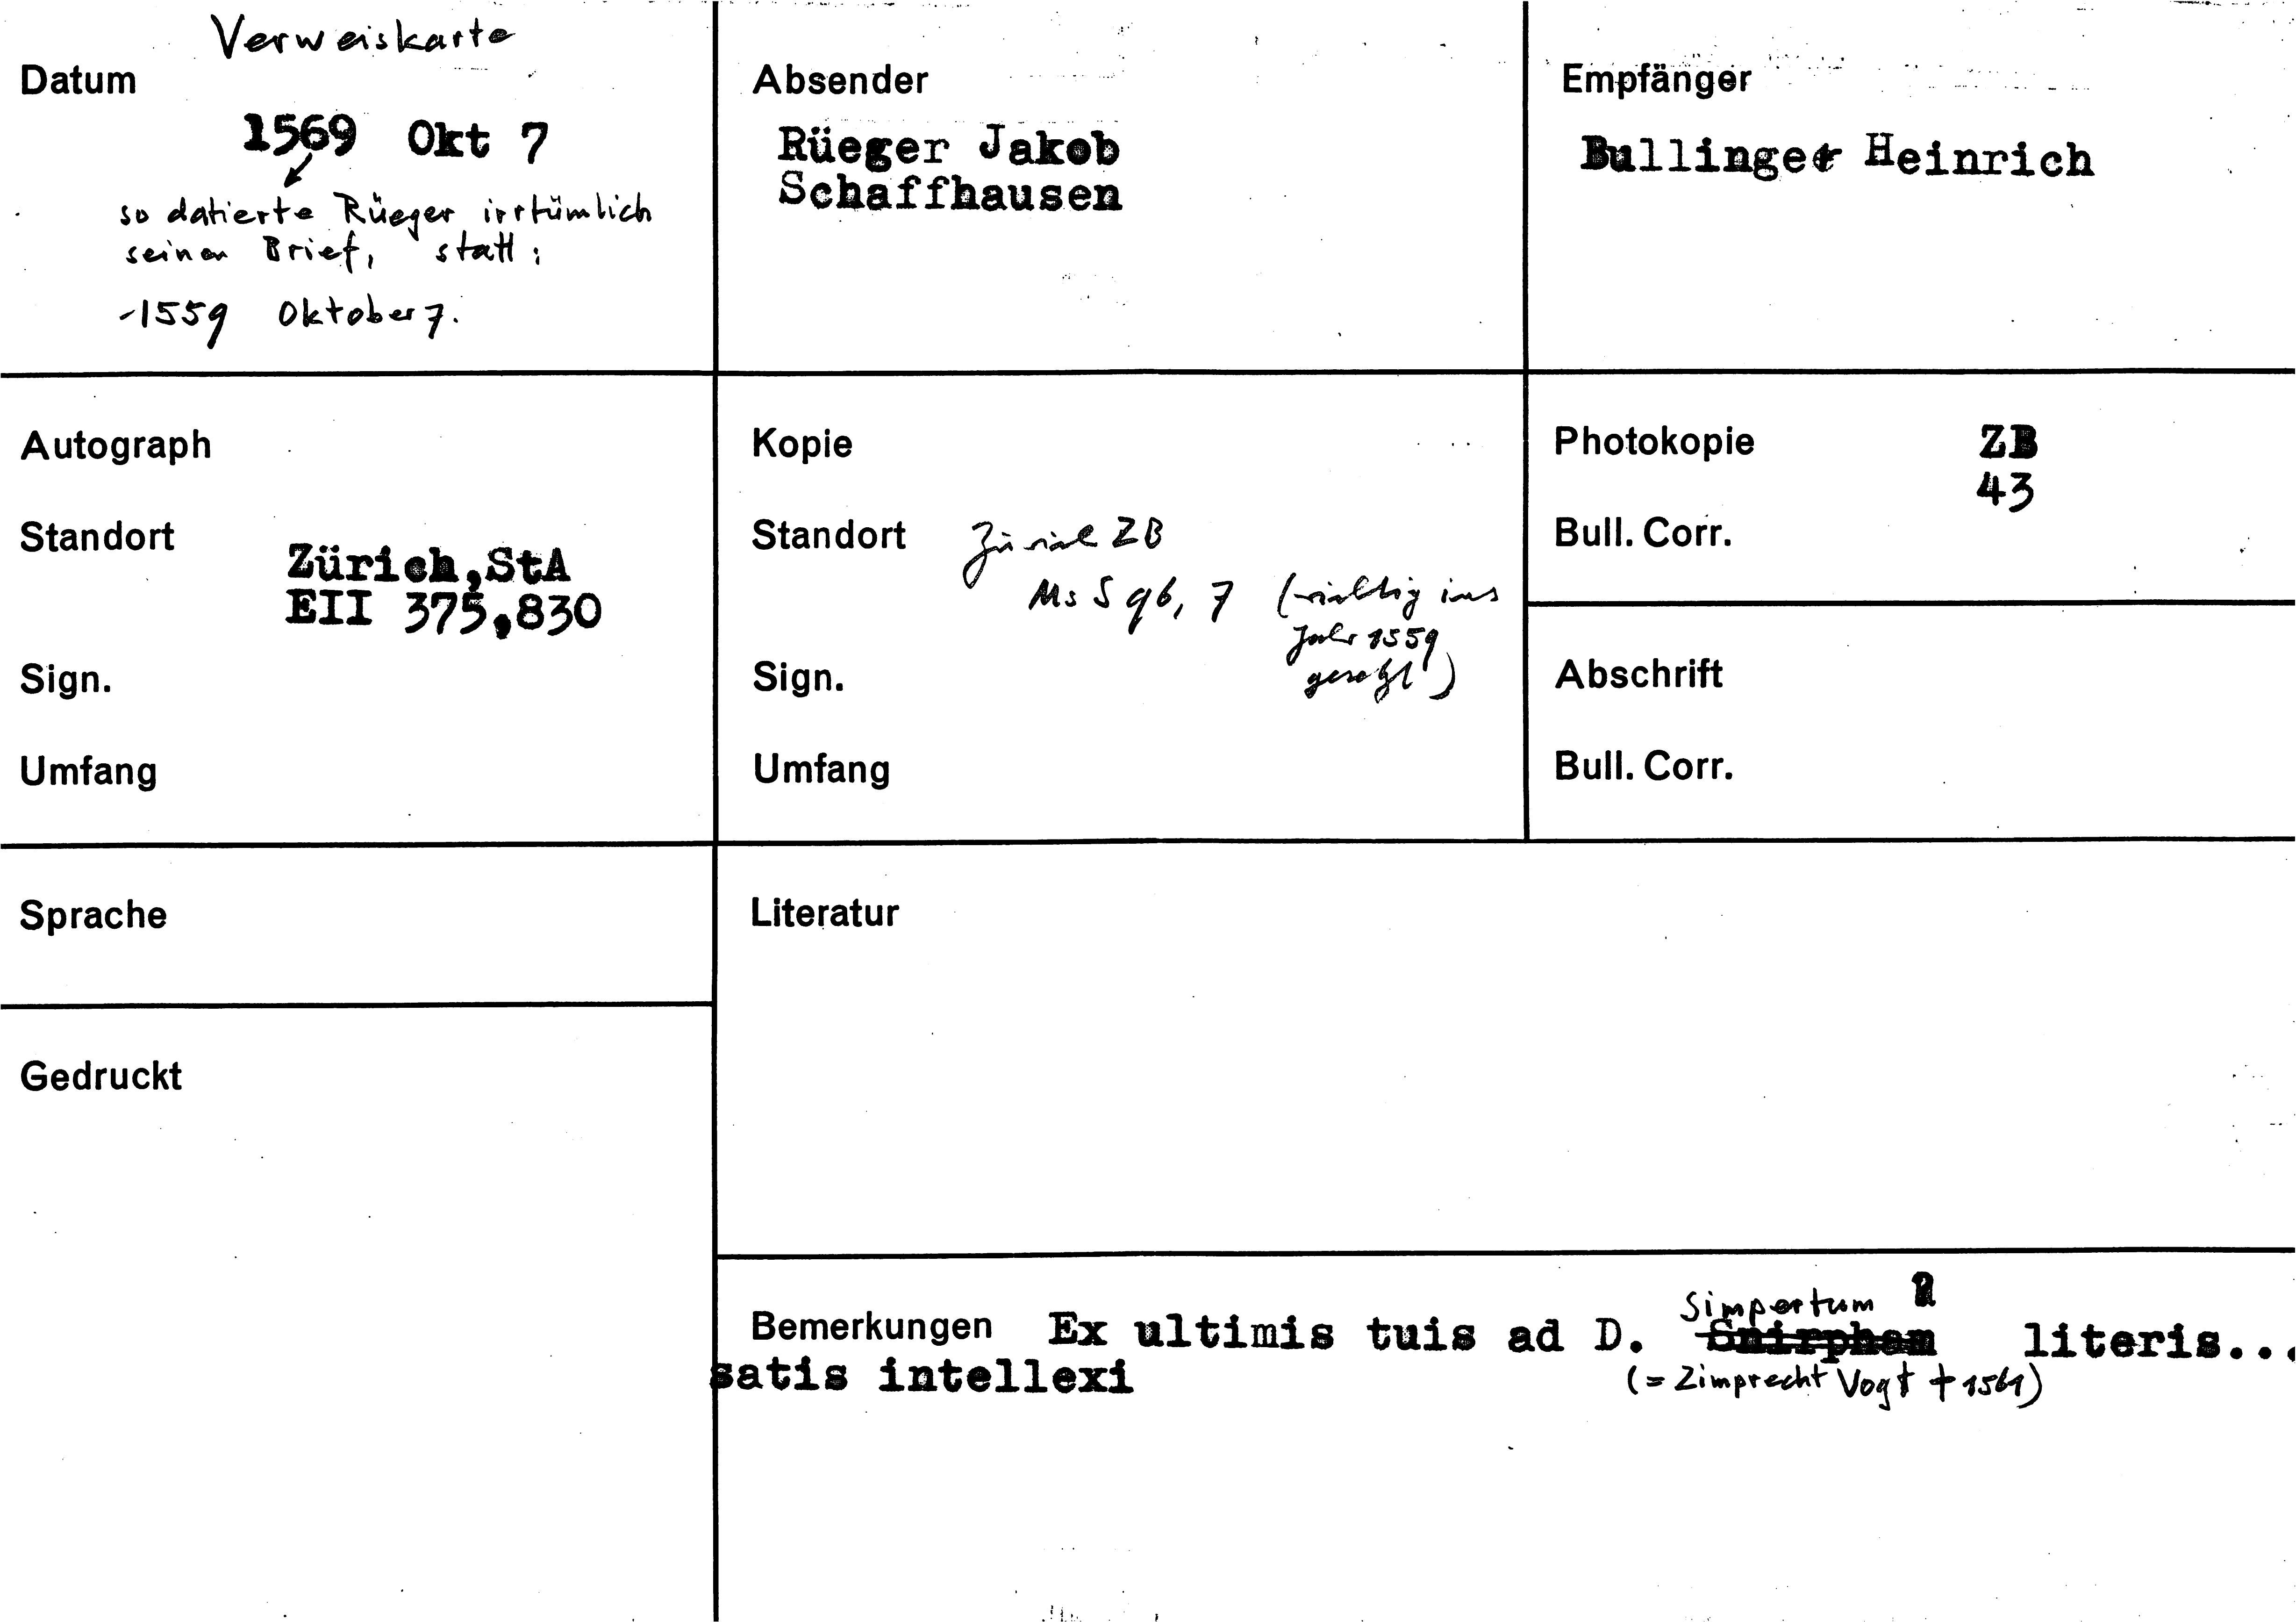 Verweiskarte
Datum
1569 Okt 7
so datierte Rüeger irrtümlich
seinen Brief, statt:
-1559 Oktober 7.
Absender
Rüeger Jakob
Schaffhausen
Empfänger
Bullinger Heinrich
Autograph
Standort
Zürich,StA
EII 375,830
Sign.
Umfang
Kopie
Standort Zürich ZB
Ms S 96, 7 (richtig ins
Jahr 1559
gesetzt)
Sign.
Umfang
Photokopie ZB
43
Bull. Corr.
Abschrift
Bull. Corr.
Sprache
Literatur
Gedruckt
Simpertum
Bemerkungen Ex ultimis tuis ad D. literis...
satis intellexi
(= Zimprecht Vogt † 1561)